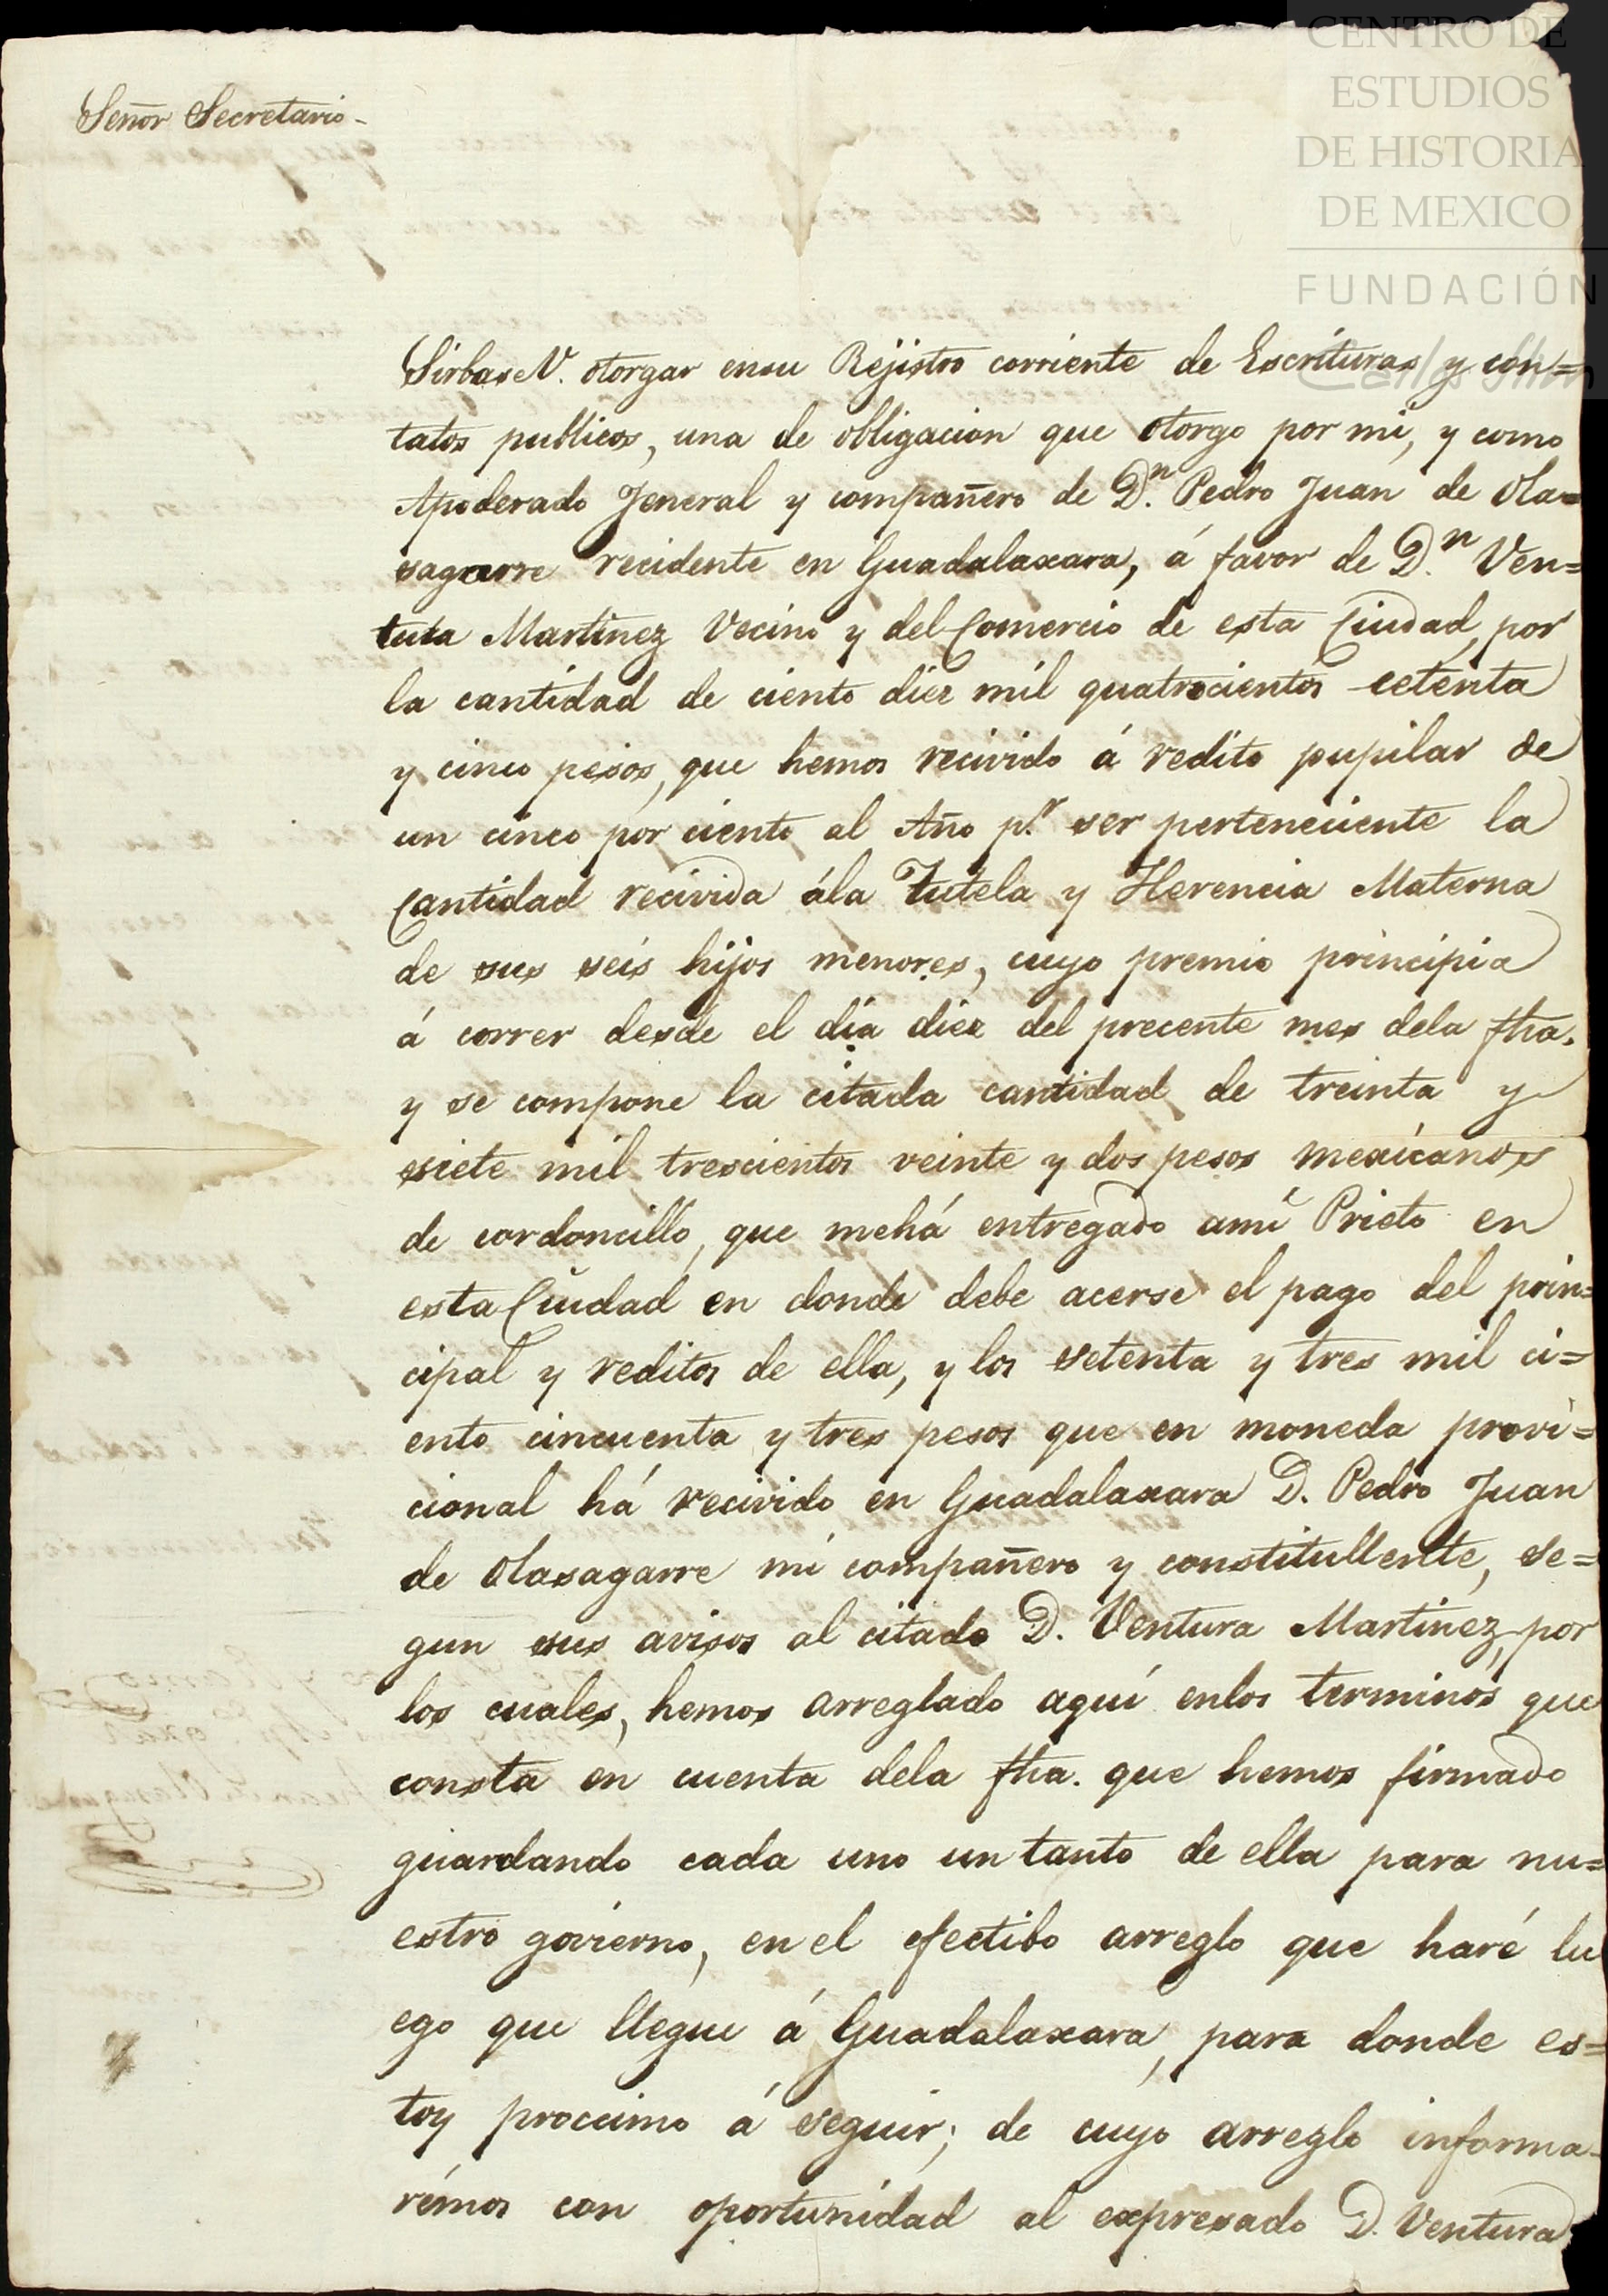 CENTRO DE
ESTUDIOS
DE HISTORIA
DE MEXICO
FUNDACIÓN
Carlos Slim
Señor Secretario-
Sirbase V. otorgar ensu Rejistro corriente de Escrituras y con=
tatos publicos, una de obligacion que otorgo por mi, y como
Apoderado Jeneral y compañero de D.n Pedro Juan de Ola=
sagarre recidente en Guadalaxara, á favor de D.n Ven=
tura Martinez Vecino y del Comercio de esta Ciudad, por
la cantidad de ciento diez mil quatrocientos cetenta
y cinco pesos, que hemos recivido á redito pupilar de
un cinco por ciento al Año p.r ser perteneciente la
Cantidad recivida ála Tutela y Herencia Materna
de sus seis hijos menores, cuyo premio principia
á correr desde el día diez del precente mes dela fha.
y se compone la citada cantidad de treinta y
siete mil trescientos veinte y dos pesos mexicanos
de cordoncillo, que mehá entregado amí Prieto en
esta Ciudad en donde debe acerse el pago del prin=
cipal y reditos de ella, y los setenta y tres mil ci=
ento cincuenta y tres pesos que en moneda provi=
cional há recivido en Guadalaxara D. Pedro Juan
de Olasagarre mi compañero y constitullente, se=
gun sus avisos al citado D. Ventura Martinez, por
los cuales, hemos arreglado aquí enlos terminos que
consta en cuenta dela fha. que hemos firmado
guardando cada uno un tanto de ella para nu=
estro govierno, en el efectibo arreglo que haré lu
ego que llegue á Guadalaxara, para donde es=
toy proccimo á seguir; de cuyo arreglo informa-
rémos con oportunidad al expresado D. Ventura